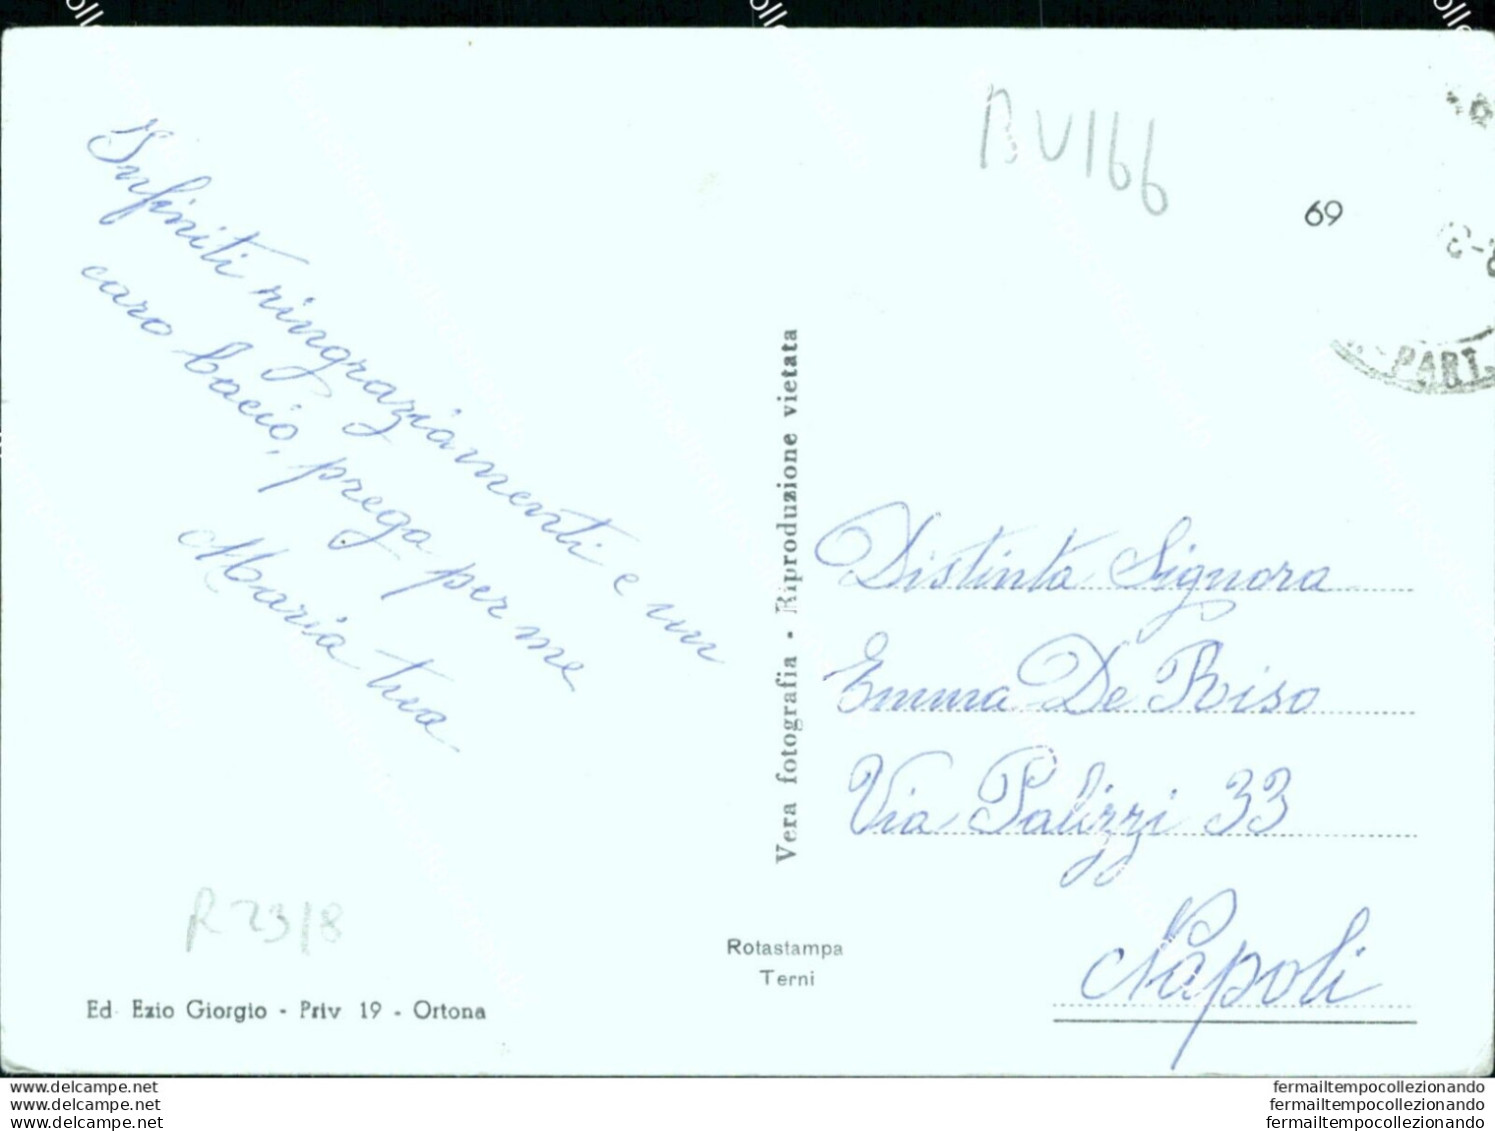 Infiniti ringraziamenti e un
caro bacio, prega per me
Maria tua
BV166
69
PART.
Vera fotografia - Riproduzione vietata
Distinta Signora
Emma De Riso
Via Palizzi 33
Napoli
R 23/8
Rotastampa
Terni
Ed. Ezio Giorgio - Priv 19 - Ortona
www.delcampe.net
www.delcampe.net
www.delcampe.net
fermailtempocollezionando
fermailtempocollezionando
fermailtempocollezionando